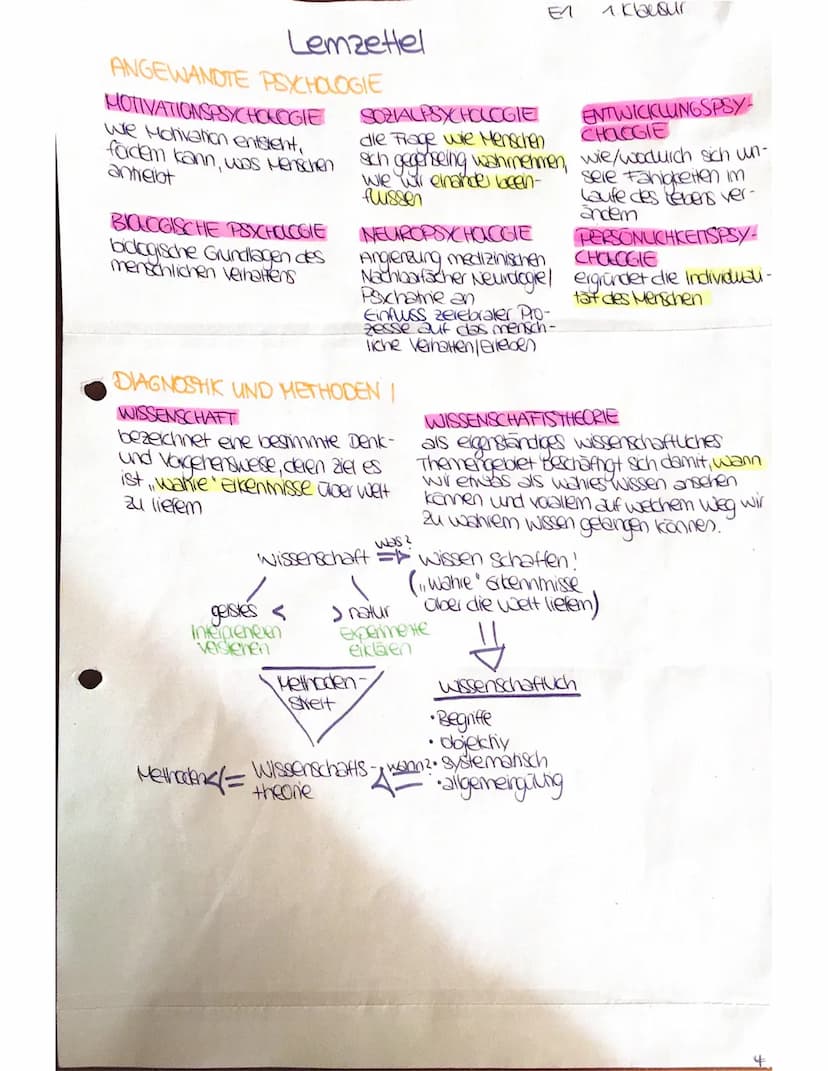 E1 1 Klausur
Lernzettel
ANGEWANDTE PSYCHOLOGIE
MOTIVATIONSPSYCHOLOGIE
wie Motivation entsteht,
fördern kann, was Menschen
antreibt
SOZIALPSYCHOLOGIE
die Frage wie Menschen
sich gegenseitig wahrnehmen,
wie wir einander beein-
flussen
ENTWICKLUNGSPSY-
CHOLOGIE
wie/wodurch sich un-
sere Fähigkeiten im
Laufe des Lebens ver-
ändern
BIOLOGISCHE PSYCHOLOGIE
biologische Grundlagen des
menschlichen Verhaltens
NEUROPSYCHOLOGIE
Angrenzung medizinischen
Nachbarfächer Neurologie/
Psychatrie an
Einfluss zerebraler Pro-
zesse auf das mensch-
liche Verhalten/Erleben
PERSÖNLICHKEITSPSY-
CHOLOGIE
ergründet die Individuali-
tät des Menschen
DIAGNOSTIK UND METHODEN I
WISSENSCHAFT
bezeichnet eine bestimmte Denk-
und Vorgehensweise, deren Ziel es
ist „wahre" Erkenntnisse über Welt
zu liefern
WISSENSCHAFTSTHEORIE
als eigenständiges wissenschaftliches
Themengebiet beschäftigt sich damit, wann
wir etwas als wahres Wissen ansehen
können und vorallem auf welchem Weg wir
zu wahrem Wissen gelangen können.
Wissenschaft was? => Wissen schaffen!
(„wahre" Erkenntnisse
über die Welt liefern)
geistes < > natur
Interpretieren
verstehen
Experimente
erklären
Methoden-
streit
wissenschaftlich
• Begriffe
• objektiv
• systematisch
• allgemeingültig
Methoden <= Wissenschafts-
theorie
wann?
4